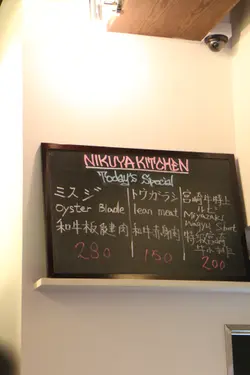 NIKUYA KITCHEN
Today's Special
ミスジ
Oyster Blade
和牛板腱肉
280
トウガラシ
lean meat
和牛赤身肉
150
宮崎牛特上
Miyazaki
Wagyu Short
200